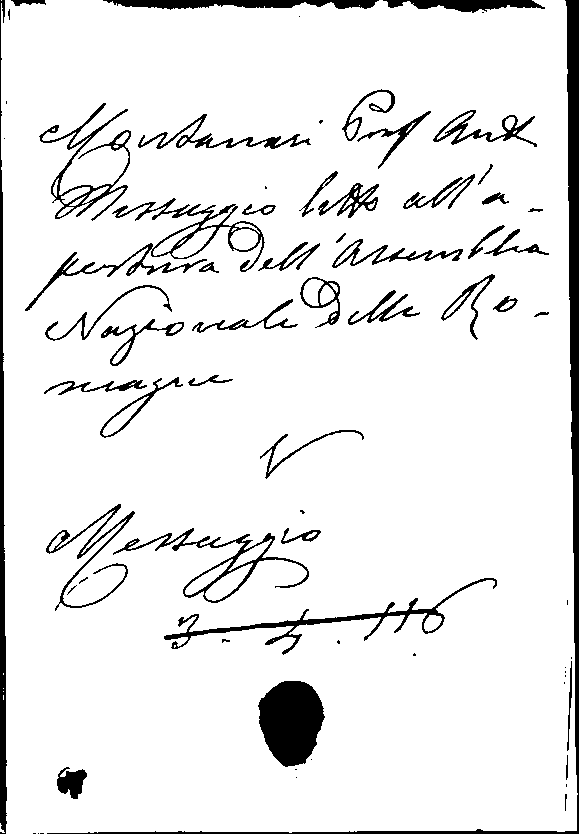 Montanari Prof Ant
Messaggio letto all'a-
pertura dell'Assemblea
Nazionale delle Ro-
magne
V
Messaggio
3. 4. 116